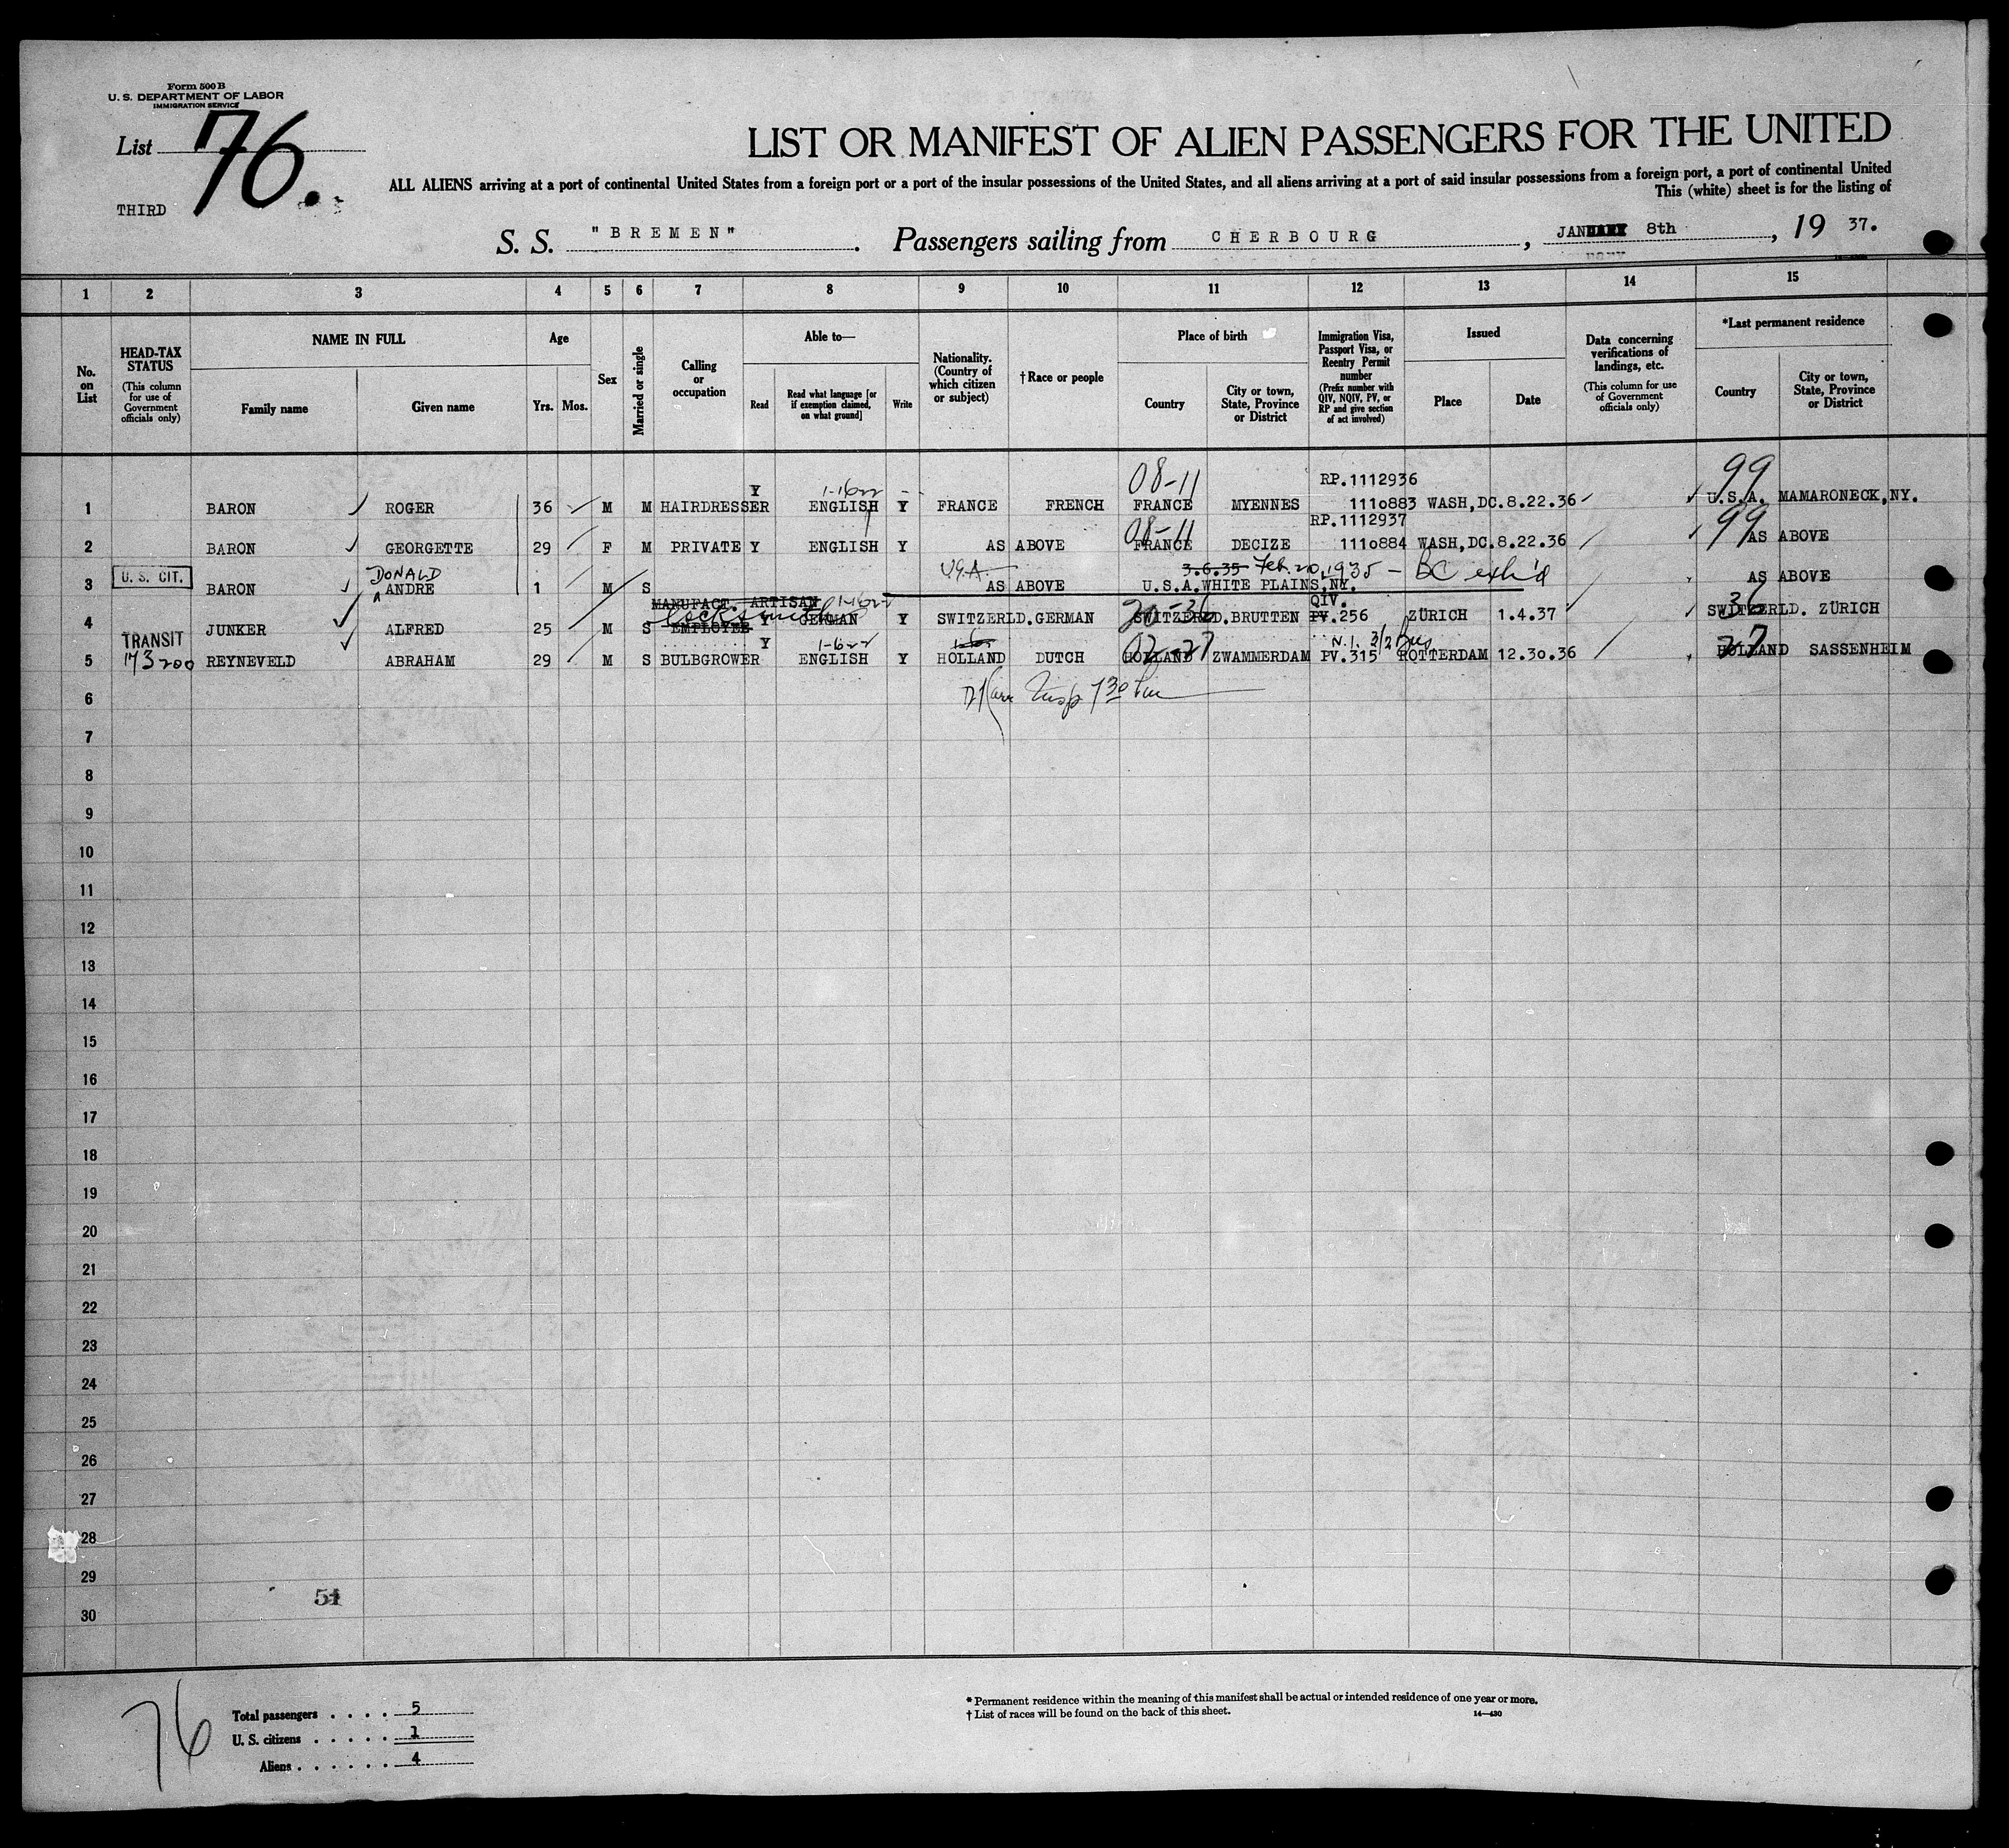 Form 500 B
U. S. DEPARTMENT OF LABOR
IMMIGRATION SERVICE
List 76.
THIRD
LIST OR MANIFEST OF ALIEN PASSENGERS FOR THE UNITED
ALL ALIENS arriving at a port of continental United States from a foreign port or a port of the insular possessions of the United States, and all aliens arriving at a port of said insular possessions from a foreign port, a port of continental United
This (white) sheet is for the listing of
S. S. "BREMEN". Passengers sailing from CHERBOURG, JANUARY 8th, 19 37.
1 2 3 4 5 6 7 8 9 10 11 12 13 14 15
No. on List
HEAD-TAX STATUS (This column for use of Government officials only)
NAME IN FULL
Family name Given name
Age
Yrs. Mos.
Sex
Married or single
Calling or occupation
Able to—
Read Read what language [or if exemption claimed, on what ground] Write
Nationality. (Country of which citizen or subject)
†Race or people
Place of birth
Country City or town, State, Province or District
Immigration Visa, Passport Visa, or Reentry Permit number (Prefix number with QIV, NQIV, PV, or RP and give section of act involved)
Issued
Place Date
Data concerning verifications of landings, etc. (This column for use of Government officials only)
*Last permanent residence
Country City or town, State, Province or District
08-11 RP.1112936 99
1 BARON ROGER 36 M M HAIRDRESSER Y ENGLISH Y FRANCE FRENCH FRANCE MYENNES 1110883 WASH,DC.8.22.36 U.S.A. MAMARONECK,NY.
08-11 RP.1112937 99
2 BARON GEORGETTE 29 F M PRIVATE Y ENGLISH Y AS ABOVE FRANCE DECIZE 1110884 WASH,DC.8.22.36 AS ABOVE
U. S. CIT. DONALD USA 3.6.35 Feb. 20, 1935 - BC exh'd
3 BARON ANDRE 1 M S AS ABOVE U.S.A. WHITE PLAINS,NY. AS ABOVE
MANUFACT. ARTISAN Locksmith 20-36 QIV. 36
4 JUNKER ALFRED 25 M S EMPLOYEE Y GERMAN Y SWITZERLD. GERMAN SWITZERD. BRUTTEN PV.256 ZÜRICH 1.4.37 SWITZERLD. ZÜRICH
TRANSIT 1-6-22 02-27 27
5 173200 REYNEVELD ABRAHAM 29 M S BULBGROWER Y ENGLISH Y HOLLAND DUTCH HOLLAND ZWAMMERDAM PV.315 ROTTERDAM 12.30.36 HOLLAND SASSENHEIM
6
7
8
9
10
11
12
13
14
15
16
17
18
19
20
21
22
23
24
25
26
27
28
29
51
30
76
Total passengers . . . . 5
U. S. citizens . . . . . 1
Aliens . . . . . . 4
* Permanent residence within the meaning of this manifest shall be actual or intended residence of one year or more.
† List of races will be found on the back of this sheet.
14—430